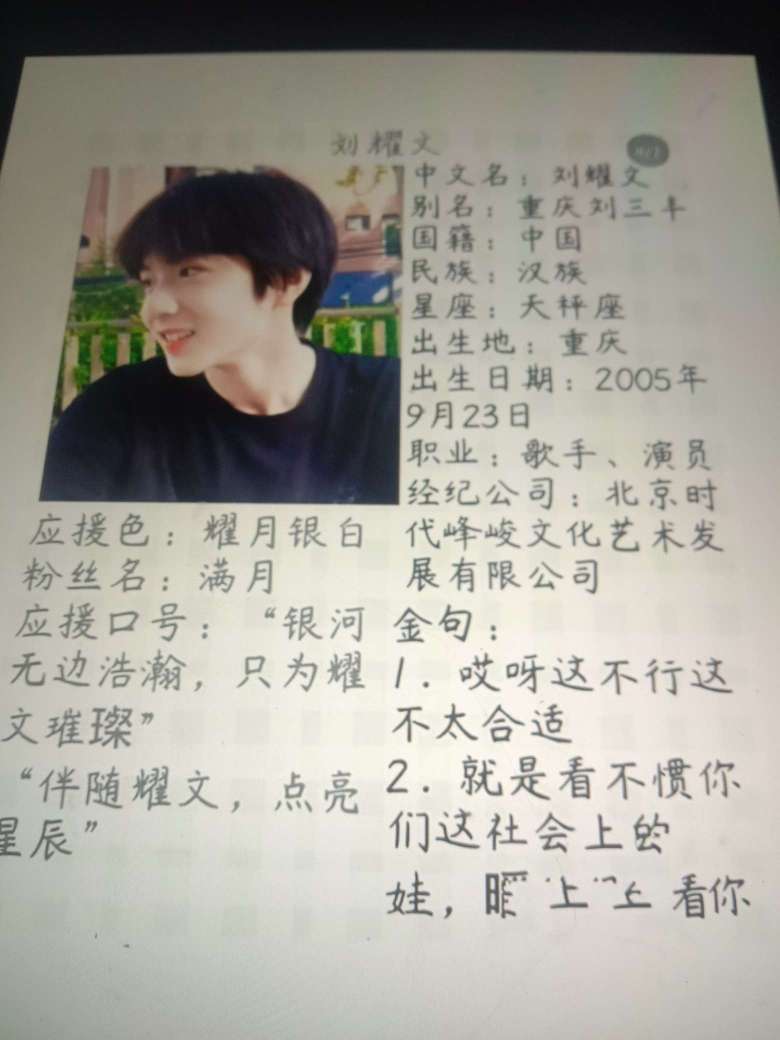 刘耀文
中文名：刘耀文
别名：重庆刘三丰
国籍：中国
民族：汉族
星座：天秤座
出生地：重庆
出生日期：2005年
9月23日
职业：歌手、演员
经纪公司：北京时
代峰峻文化艺术发
展有限公司
应援色：耀月银白
粉丝名：满月
应援口号：“银河
无边浩瀚，只为耀
文璀璨”
“伴随耀文，点亮
星辰”
金句：
1．哎呀这不行这
不太合适
2．就是看不惯你
们这社会上的
娃，看你